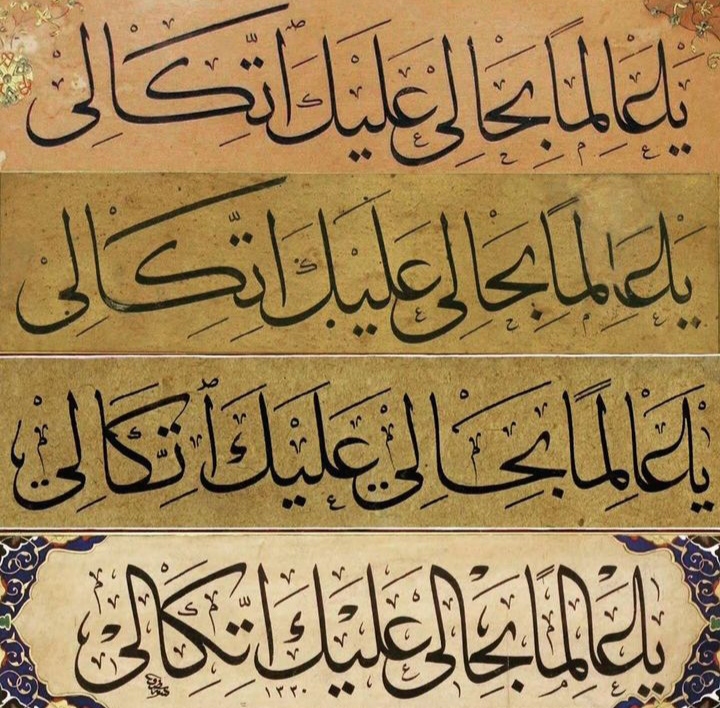 يا عالما بحالي عليك اتكالي
يا عالما بحالي عليك اتكالي
يا عالما بحالي عليك اتكالي
يا عالما بحالي عليك اتكالي
١٣٣٠